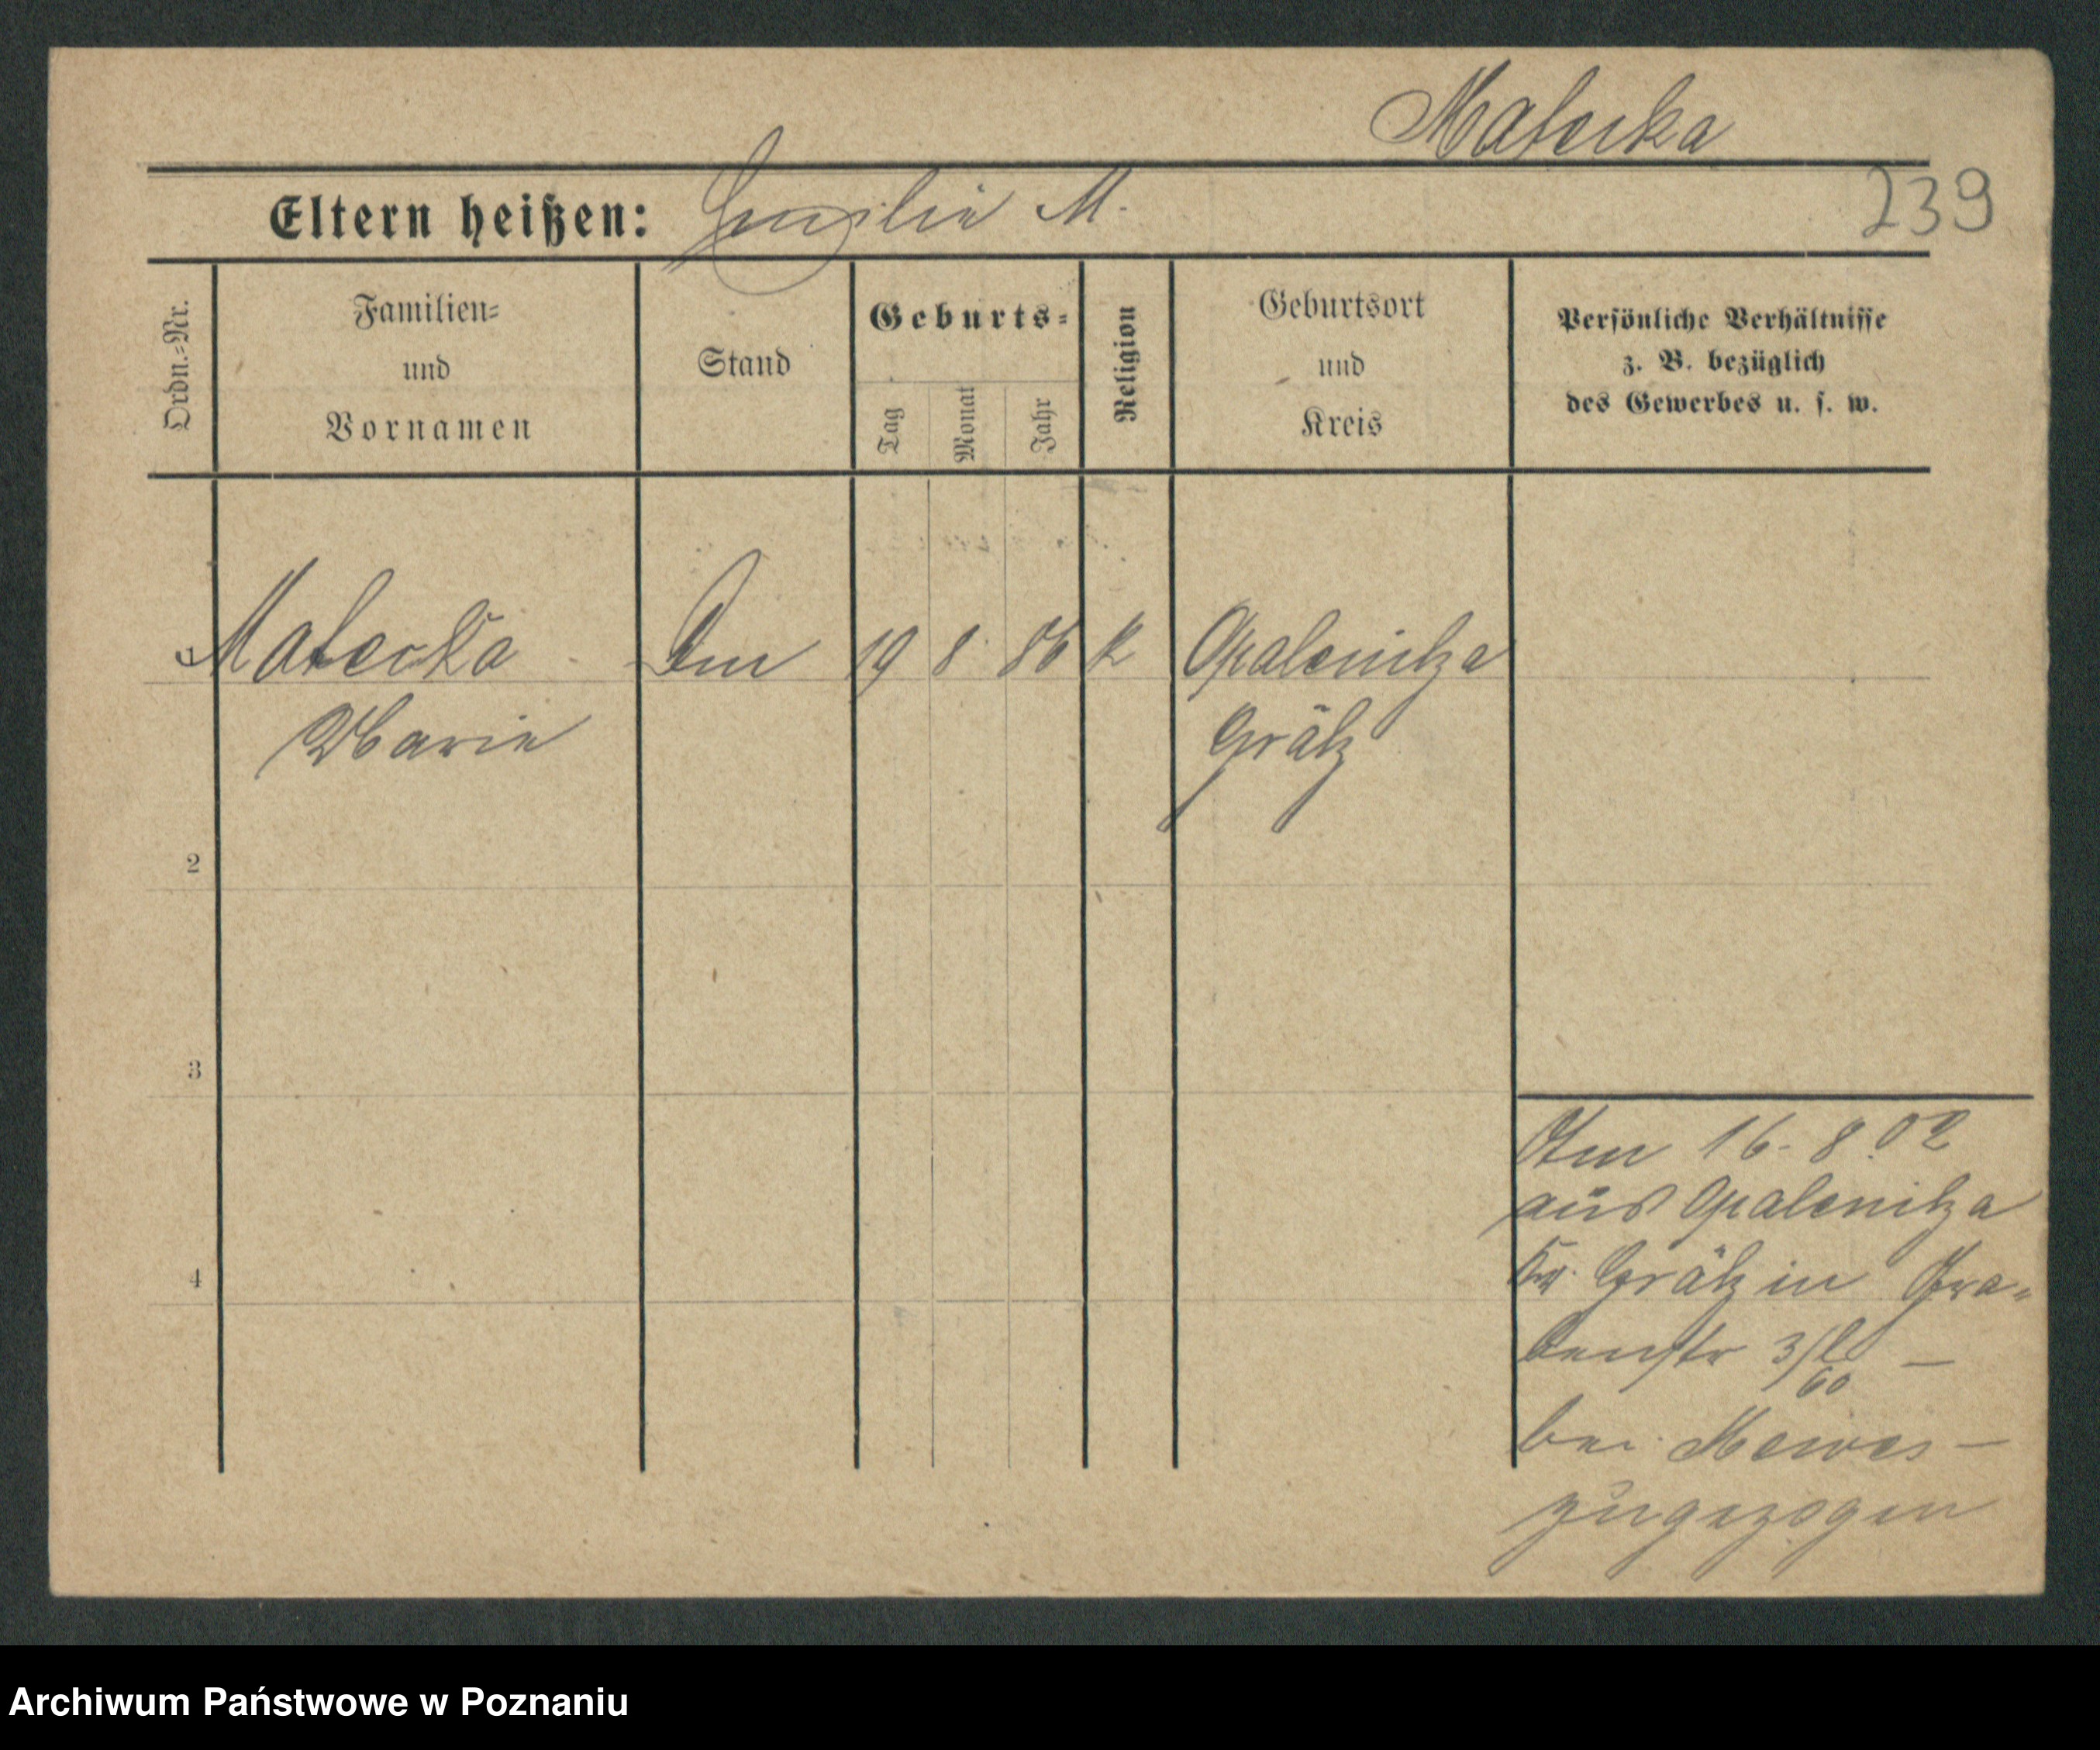 Matecka
Eltern heißen: Emilie M.
239
Ordn.=Nr.
Familien=
und
Vornamen
Stand
Geburts=
Tag
Monat
Jahr
Religion
Geburtsort
und
Kreis
Persönliche Verhältnisse
z. B. bezüglich
des Gewerbes u. s. w.
1
Matecka 19 8 86 k Opalenitza
Marie Grätz
2
3
4
Am 16. 8. 02
aus Opalenitza
Kr. Grätz in Gra=
benstr 3
60
bei Mewes –
zugezogen
Archiwum Państwowe w Poznaniu